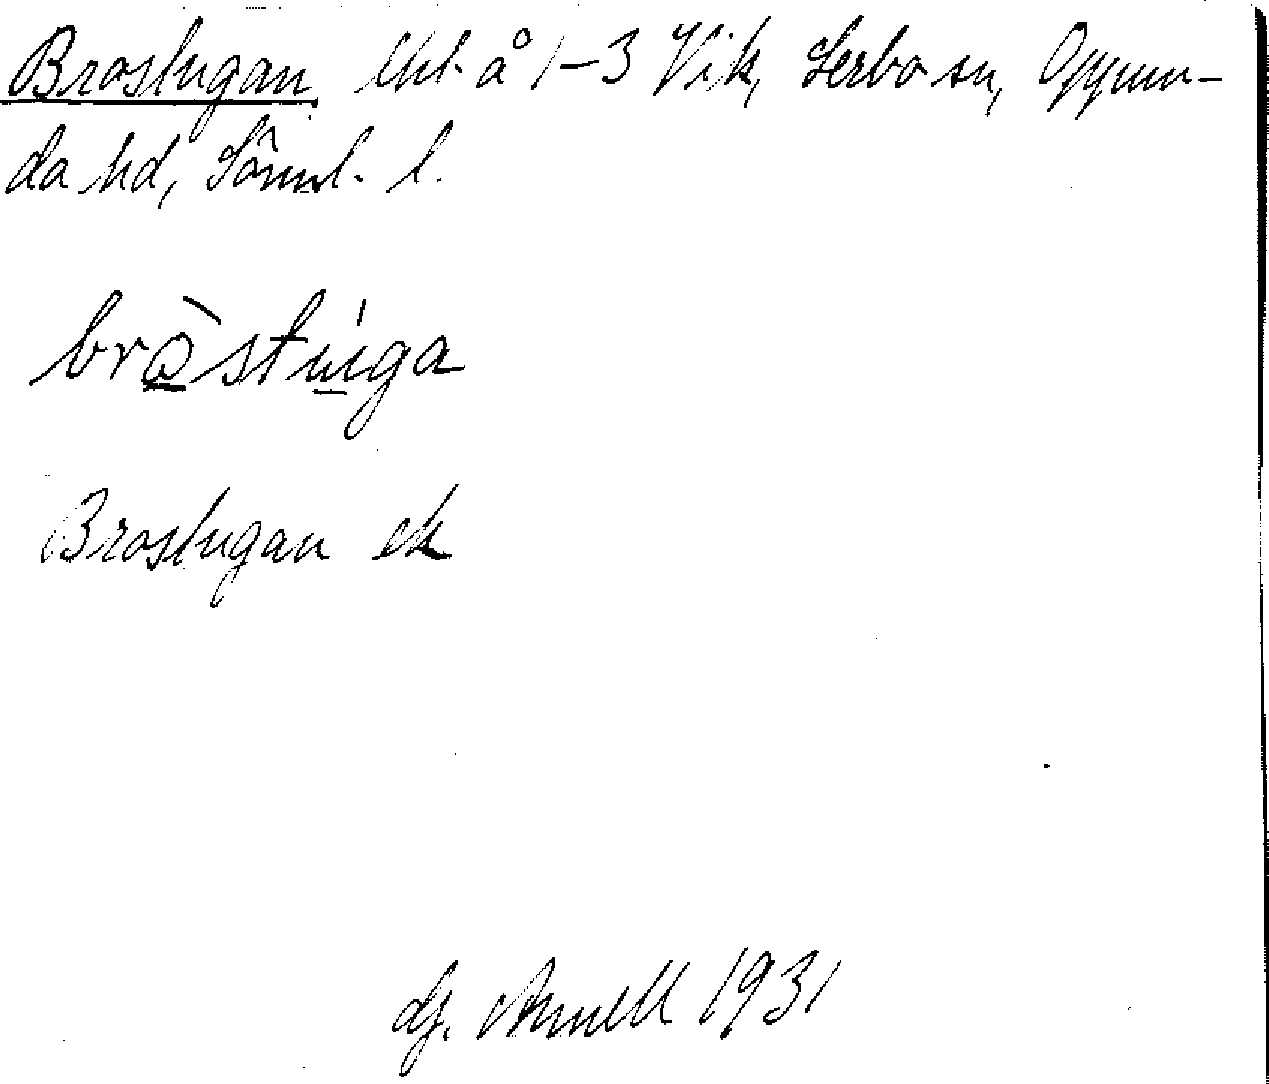 Brostugan lht. å 1-3 Vik, Lerbo sn, Oppun-
da hd, Sörml. l.
bròstúga
Brostugan ek
Annell 1931